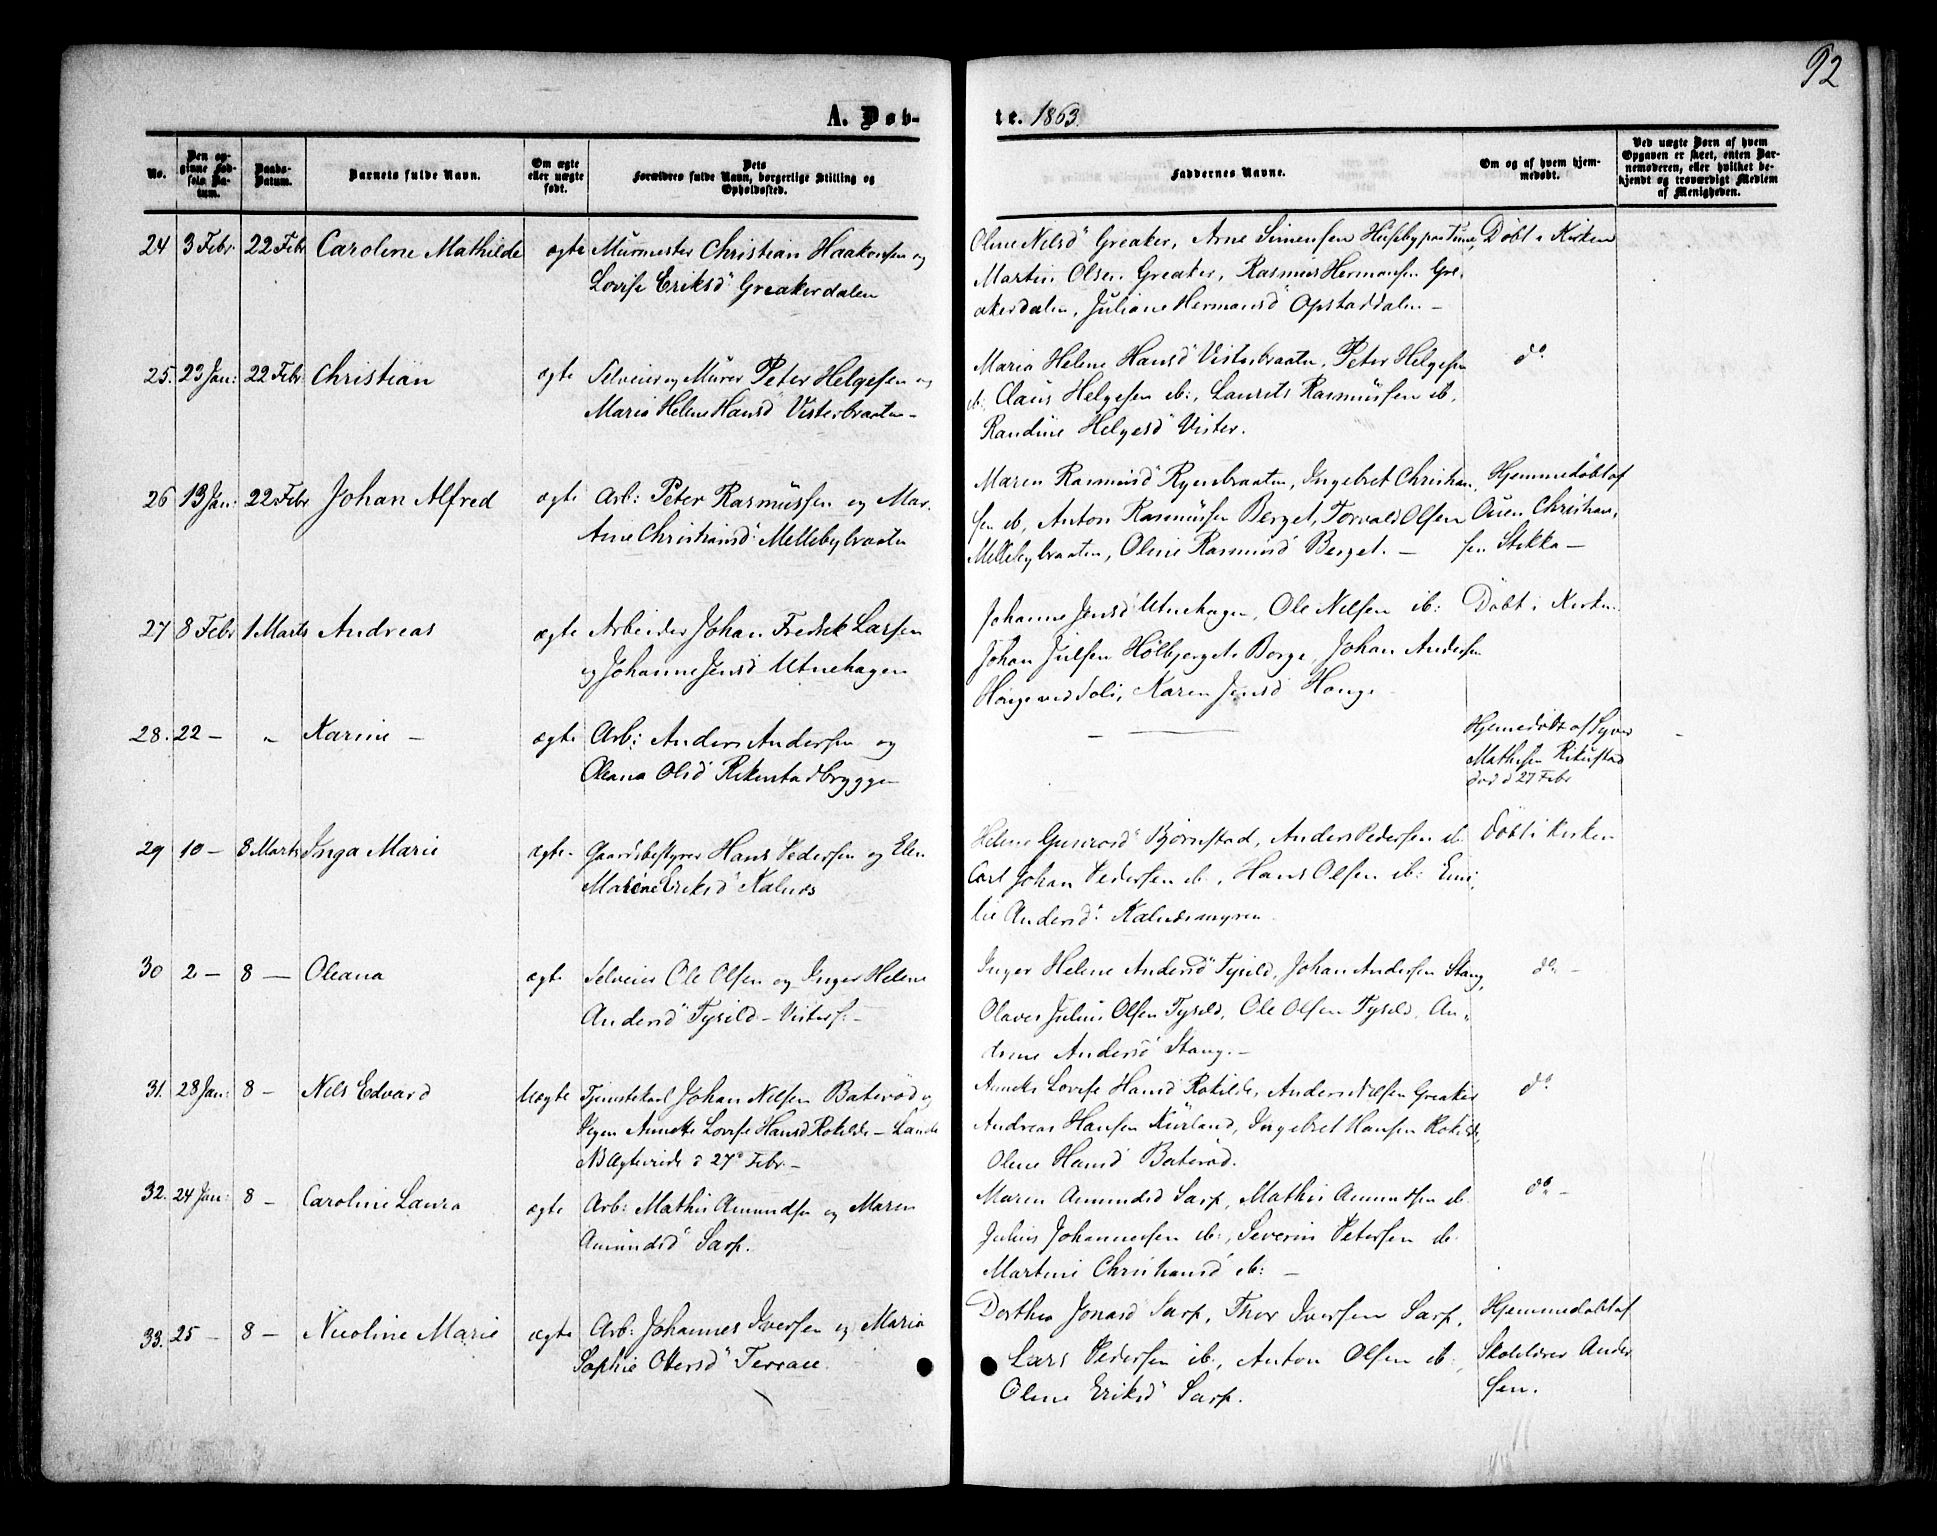 92
A. Døb-
te. 1863.
No.
Den opginne Fødsels Datum.
Daabs-Datum.
Barnets fulde Navn.
Om ægte eller uægte født.
Dets Forældres fulde Navn, borgerlige Stilling og Opholdssted.
Faddernes Navne.
Om og af hvem hjemmedøbt.
Ved uægte Børn af hvem Opgaven er skeet, enten Barnemoderen, eller hvilket bekjendt og troværdigt Medlem af Menigheden.
24 3 Febr. 22 Febr Caroline Mathilde ægte Murmester Christian Haakensen og
Lovise Eriksd Greakerdalen
Oline Nilsd Greaker, Arne Simensen
Martin Olsen Greaker, Rasmus Hermansen Gre-
akerdalen, Juliane Hermansd Opstaddalen -
Døbt i Kirken
25. 23 Jan: 22 Febr Christian ægte Selveier og Murer Peter Helgesen og
Maria Helene Hansd Visterbraaten -
Maria Helene Hansd Visterbraaten, Peter Helgesen
ib., Claus Helgesen ib:, Laurits Rasmussen ib,
Randine Helgesd Vister.
do
26 13 Jan: 22 Febr Johan Alfred ægte Arb: Peter Rasmussen og Mar.
Arne Christiansd: Mellebybraaten
Maren Rasmusd Ryenbraaten, Ingebret Christian-
sen ib, Anton Rasmussen Berget, Torvald Olsen
Mellebybraaten, Oline Rasmusd Berget. -
Hjemmedöbt af
Ouen Christian-
sen Stikka -
27 8 Febr 1 Marts Andreas ægte Arbeider Johan Fredrik Larsen
og Johanne Jensd Utnehagen
Johanne Jensd Utnehagen, Ole Nilsen ib:
Johan Julsen Borge, Johan Andersen
Hauge ved Soli, Karen Jensd Hauge -
Döbt i Kirken
28. 22 - " Karine - ægte Arb: Anders Andersen og
Oleana Olsd Rikenstadbryggen
Hjemedöbt af Syver
Mathisen Rikustad
död d 27 Febr
29 10 - 8 Marts Inga Marie ægte- Gaardsbestyrer Hans Pedersen og Elen
Marene Eriksd Kalnæs
Helene Björnstad, Anders Pedersen ib
Carl Johan Pedersen ib., Hans Olsen ib: Emi-
lie Andersd: Kalnæsmyren
Döbt i Kirken
30 2 - 8 - Oleana ægte Selveier Ole Olsen og Inger Helene
Andersd Tysild - Visterf: -
Inger Helene Andersd Tysild, Johan Andersen Stang,
Olaves Julius Olsen Tysild, Ole Olsen Tysild, An-
drine Andersd Stang. -
do -
31. 28 Jan: 8 - Nils Edvard Uægte Tjenestekarl Johan Nilsen Baterød og
Pigen Annette Lovise Hansd Rokilde - Lande
NB Ægteviede d 27de Febr. -
Annette Lovise Hansd Rokilde, Anders Nilsen Greaker
Andreas Hansen Kurland, Ingebret Hansen Rokilde,
Oline Hansd Baterød.
do
32. 24 Jan: 8 - Caroline Laura ægte Arb: Mathis Amundsen og Maren
Amundsd Sarp.
Maren Amundsd Sarp, Mathis Amundsen ib.
Julius Johannesen ib:, Severin Petersen ib.
Martine Christiansd ib: -
do -
33. 25 - 8 - Nicoline Marie ægte Arb: Johannes Iversen og Maria
Sophie Otersd Terrace.
Dorthea Jonasd Sarp, Thor Iversen Sarp,
Lars Pedersen ib., Anton Olsen ib:,
Oline Eriksd Sarp.
Hjemmedöbt af
Skolelærer Ander
sen.